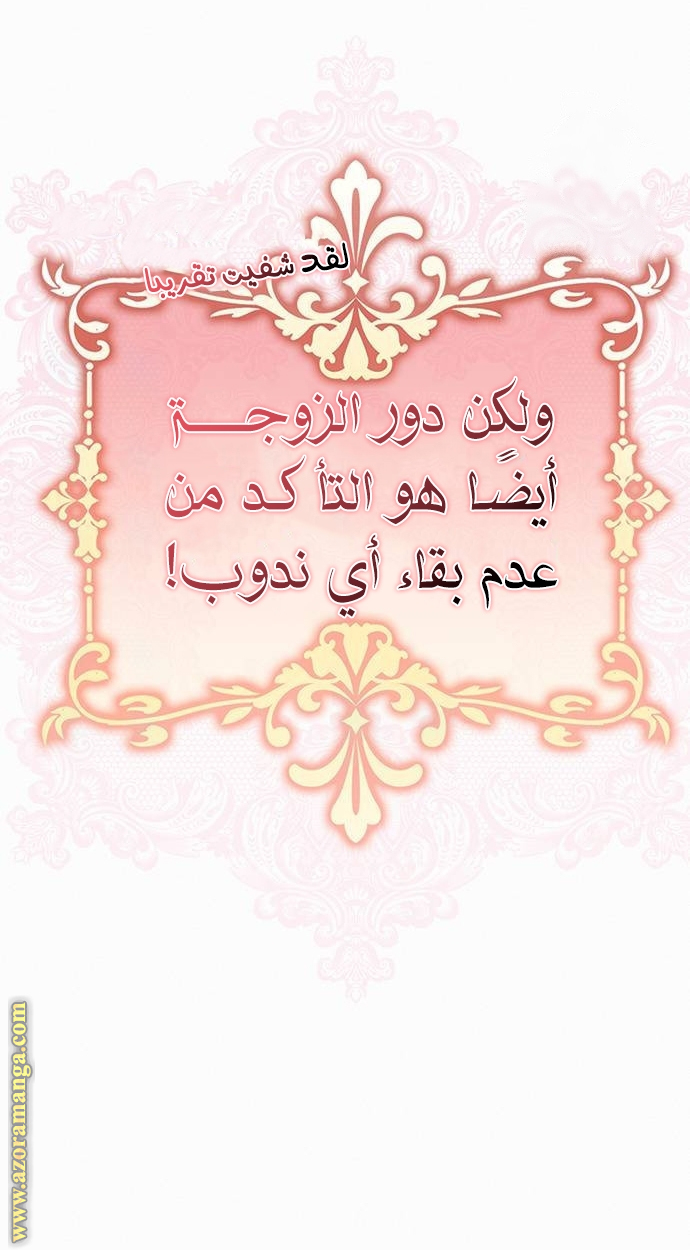 لقد شفيت تقريبا
ولكن دور الزوجـــة
أيضًا هو التأكد من
عدم بقاء أي ندوب!
www.azoramanga.com